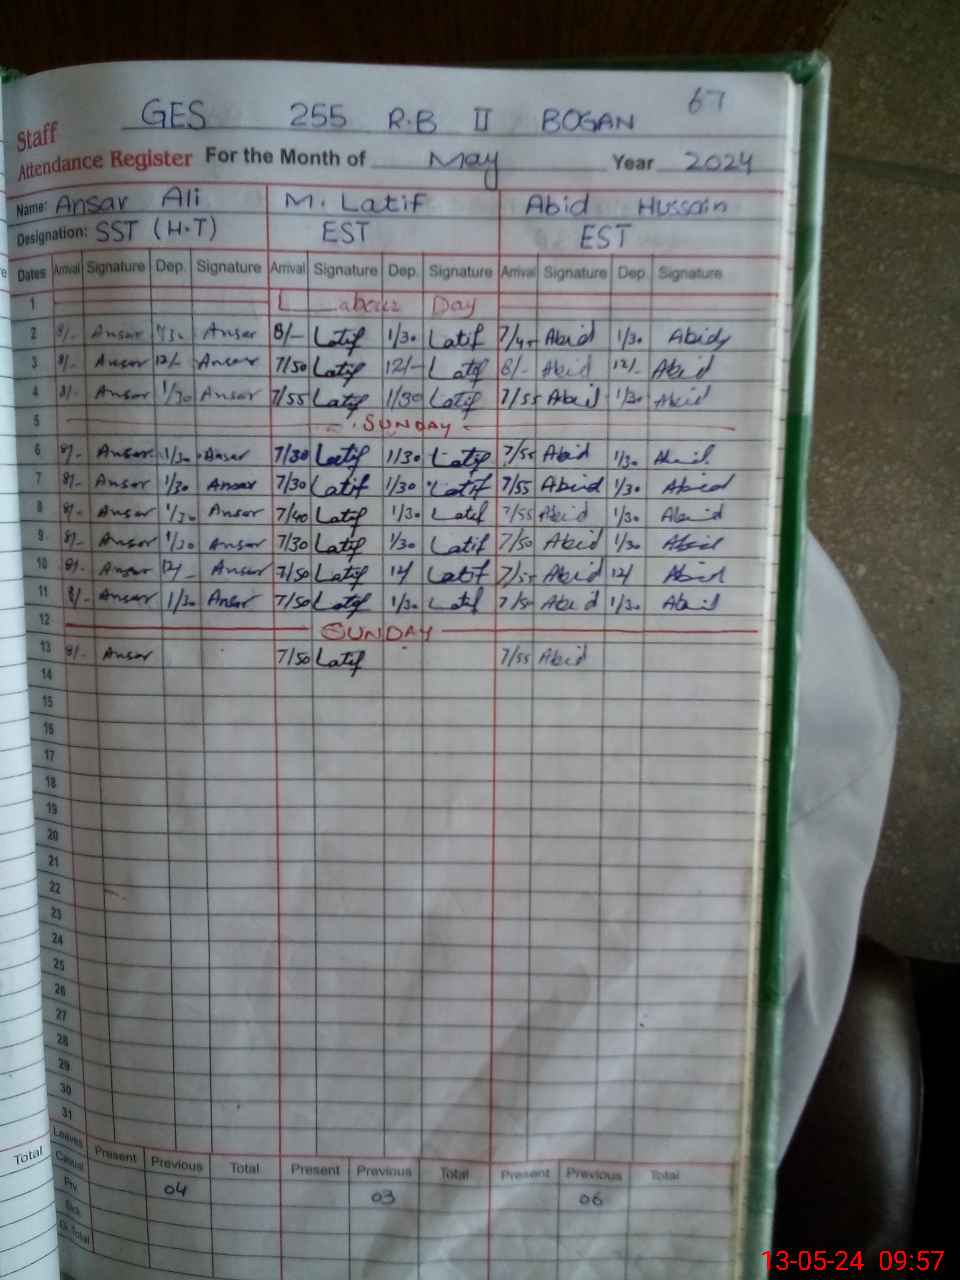 67
GES 255 R.B II BOGAN
Staff
Attendance Register For the Month of May Year 2024
Name: Ansar Ali M. Latif Abid Hussain
Designation: SST (H.T) EST EST
Dates Arrival Signature Dep. Signature Arrival Signature Dep. Signature Arrival Signature Dep. Signature
1 Labour Day
2 8/- Ansar 1/30 Ansar 8/- Latif 1/30 Latif 7/45 Abid 1/30 Abid
3 8/- Ansar 12/- Ansar 7/50 Latif 12/- Latif 8/- Abid 12/- Abid
4 8/- Ansar 1/30 Ansar 7/55 Latif 1/30 Latif 7/55 Abid 1/30 Abid
5 SUNDAY
6 8/- Ansar 1/30 Ansar 7/30 Latif 1/30 Latif 7/55 Abid 1/30 Abid
7 8/- Ansar 1/30 Ansar 7/30 Latif 1/30 Latif 7/55 Abid 1/30 Abid
8 8/- Ansar 1/30 Ansar 7/40 Latif 1/30 Latif 7/55 Abid 1/30 Abid
9 8/- Ansar 1/30 Ansar 7/30 Latif 1/30 Latif 7/50 Abid 1/30 Abid
10 8/- Ansar 12/- Ansar 7/50 Latif 12/ Latif 7/55 Abid 12/ Abid
11 8/- Ansar 1/30 Ansar 7/50 Latif 1/30 Latif 7/50 Abid 1/30 Abid
12 SUNDAY
13 8/- Ansar 7/50 Latif 7/55 Abid
14
15
16
17
18
19
20
21
22
23
24
25
26
27
28
29
30
31
Leaves Present Previous Total Present Previous Total Present Previous Total
Casual 04 03 06
Prv.
Sick
G.Total
Total
13-05-24 09:57